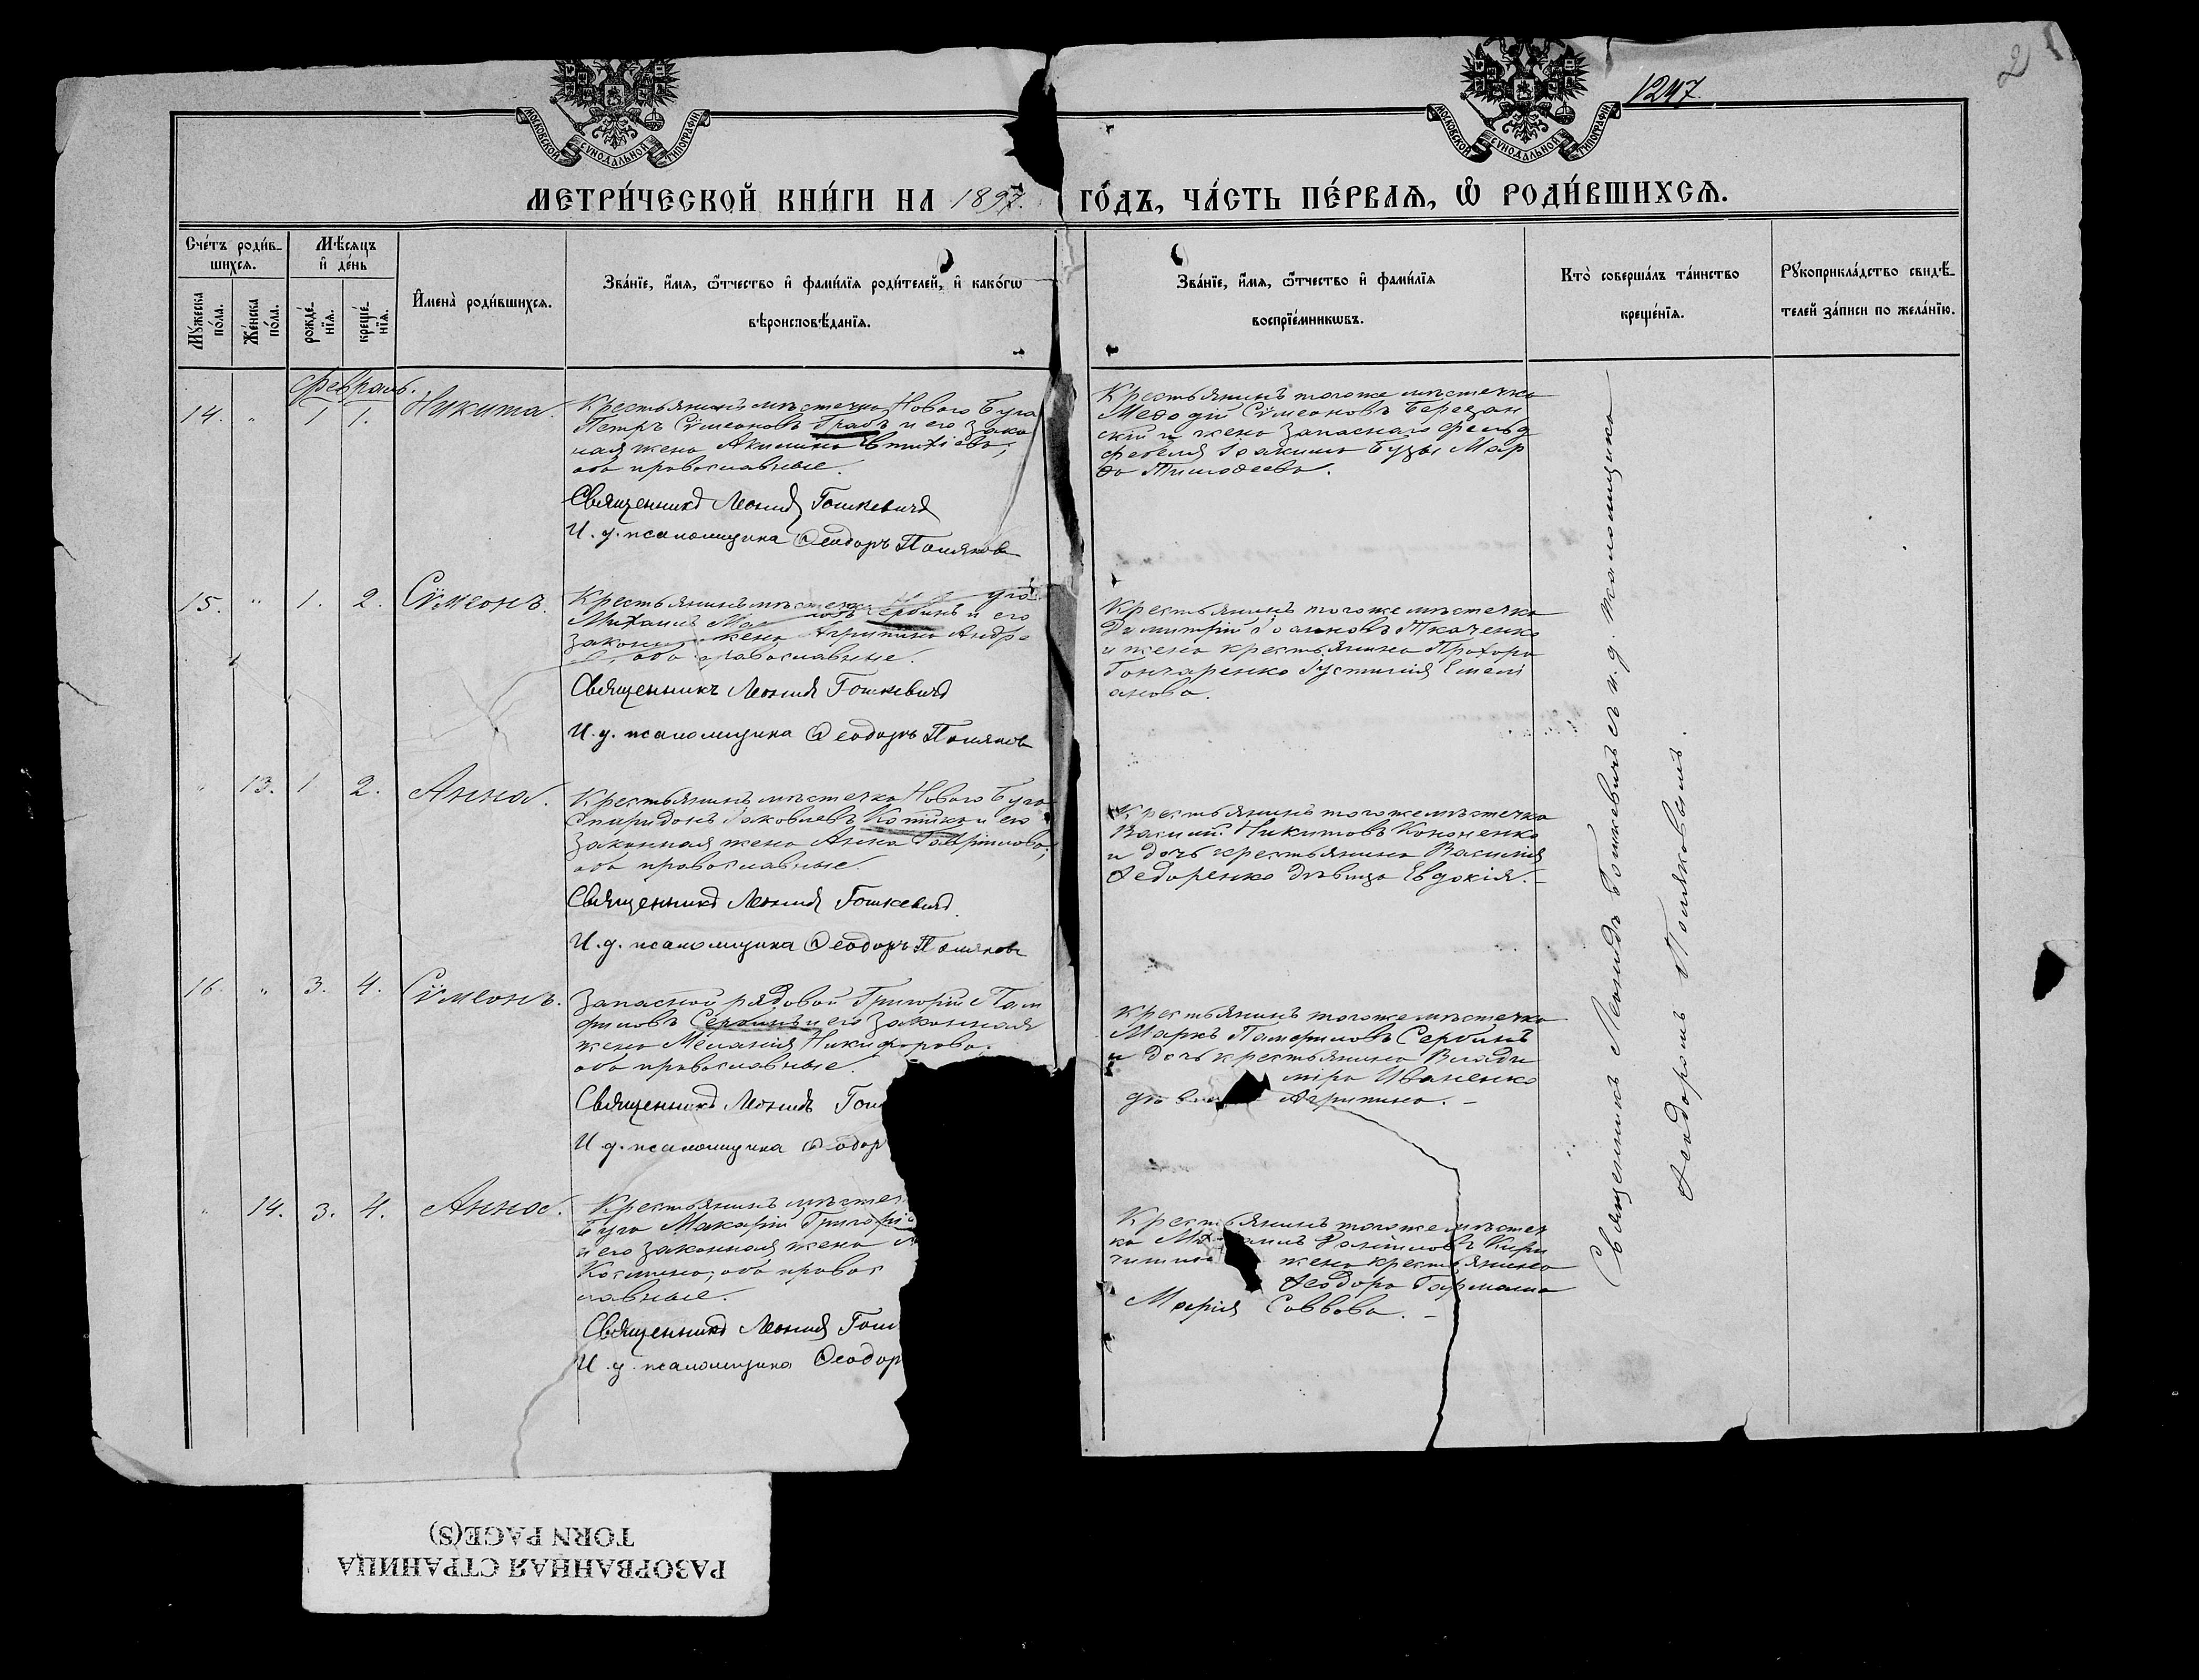 2
1247.
МОСКОВСКОЙ СУНОДАЛЬНОЙ ТИПОГРАФІИ
МОСКОВСКОЙ СУНОДАЛЬНОЙ ТИПОГРАФІИ
МЕТРИ́ЧЕСКОЙ КНИ́ГИ НА 1897. ГО́ДЪ, ЧА́СТЬ ПЕ́РВАѦ, Ѽ РОДИ́ВШИХСѦ.
Сче́тъ роди́в-
шихсѧ.
Мѣ́сѧцъ
и҆ де́нь
Мꙋ́жеска
по́ла.
Же́нска
по́ла.
рожде́-
нїѧ.
креще́-
нїѧ.
И҆мена̀ роди́вшихсѧ.
Зва́нїе, и҆́мѧ, ѻ҆́тчество и҆ фами́лїѧ роди́телей, и҆ како́гѡ
вѣроисповѣ́данїѧ.
Зва́нїе, и҆́мѧ, ѻ҆́тчество и҆ фами́лїѧ
воспрїе́мникѡвъ.
Кто̀ соверша́лъ та́инство
креще́нїѧ.
Рꙋкоприкла́дство свидѣ́-
телей за́писи по жела́нїю.
Февраль.
14. " 1 1. Никита.
Крестьянинъ мѣстечка Новаго Буга
Петръ Сѵмеоновъ Грабъ и его зако
ная жена Акилина Евтихіева;
оба православные.
Священникъ Леонидъ Гошкевичъ
И. д. псаломщика Ѳеодоръ Поляковъ
Крестьянинъ тогоже мѣстечка
Меѳодій Сѵмеоновъ Березан
скій и жена запаснаго фельд
фебеля Іоакима Бузы Мар
ѳа Тимоѳеева.
15. " 1. 2. Сѵмеонъ.
Крестьянинъ
Михаилъ Сербинъ и его
жена Агрипина Андре
оба православные.
Священникъ Леонидъ Гошкевичъ
И. д. псаломщика Ѳеодоръ Поляковъ
Крестьянинъ тогоже мѣстечка
Димитрій Іоанновъ Ткаченко
и жена крестьянина Прохора
Гончаренко Іустинія Емелі
анова.
" 13. 1 2. Анна.
Крестьянинъ мѣстечка Новаго Буга
Спиридонъ Іаковлевъ Котико и его
законная жена Анна Гавріилова;
оба православные.
Священникъ Леонидъ Гошкевичъ.
И. д. псаломщика Ѳеодоръ Поляковъ
Крестьянинъ тогоже мѣстечка
Василій Никитовъ Кононенко
и дочь крестьянина Василія
Ѳедоренко дѣвица Евдокія. -
16. " 3. 4. Сѵмеонъ.
Запасной рядовой Григорій Пам
филовъ Сербинъ и его законная
жена Меланія Никифорова.
оба православные.
Священникъ Леонидъ Гош
И. д. псаломщика Ѳеодор
Крестьянинъ тогоже мѣстечка
Маркъ Памфиловъ Сербинъ
и дочь крестьянина Влади
міра Иваненко
Агрипина. -
" 14. 3. 4. Анна.
Крестьянинъ мѣстеч
Буга Макарій Григорі
и его законная жена
Космина, оба правос
лавные.
Священникъ Леонидъ Гош
И. д. псаломщика Ѳеодор
Крестьянинъ тогоже мѣстеч
ка
жена крестьянина
Ѳеодора Гармаша
Марія Саввова. -
Священникъ Леонидъ Гошкевичъ съ и. д. псаломщика
Ѳеодоромъ Поляковымъ.
РАЗОРВАННАЯ СТРАНИЦА
TORN PAGE(S)